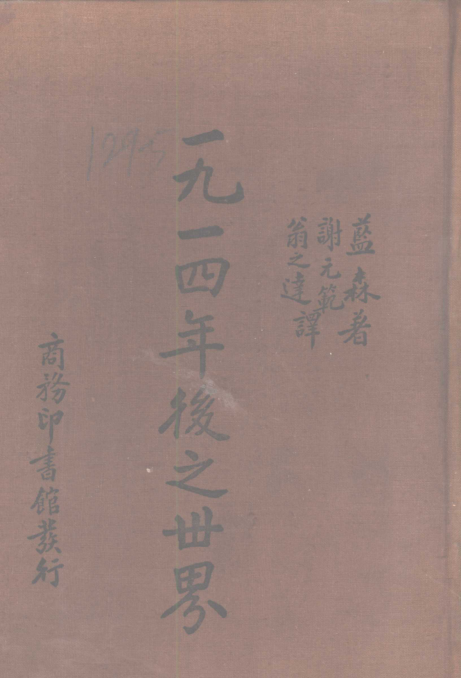 藍森著
謝元範
翁之達譯
一九一四年後之世界
商務印書館發行